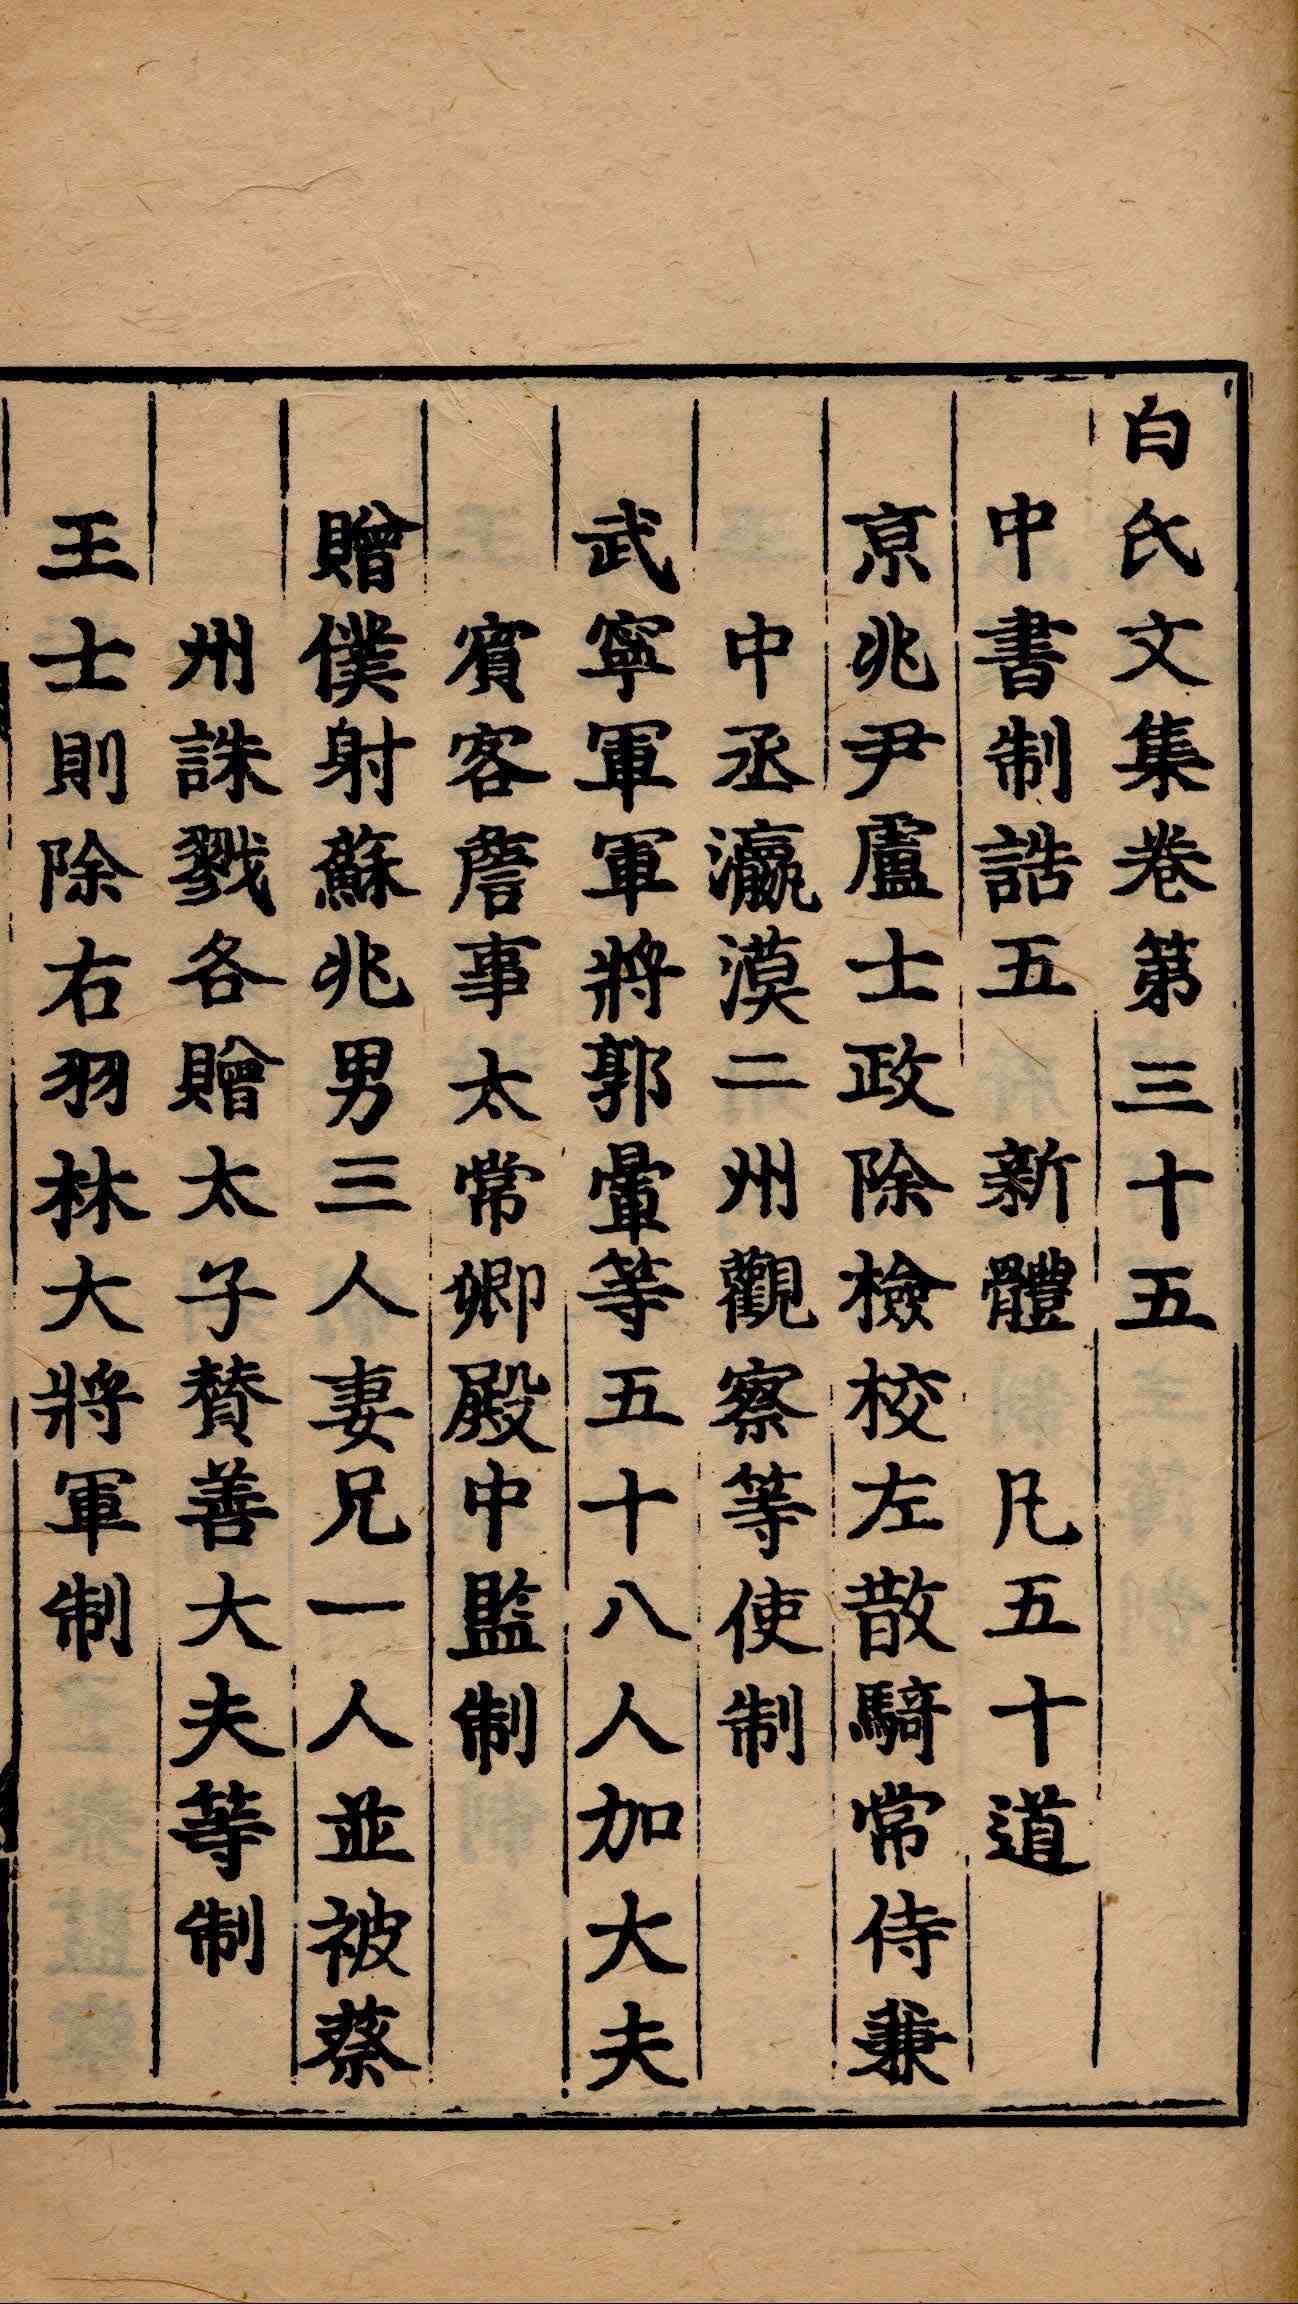 白氏文集卷第三十五
中書制誥五　新體　凡五十道
京兆尹盧士政除檢校左散騎常侍兼
中丞瀛漠二州觀察等使制
武寧軍軍將郭暈等五十八人加大夫
賓客詹事太常卿殿中監制
贈僕射蘇兆男三人妻兄一人並被蔡
州誅戮各贈太子賛善大夫等制
王士則除右羽林大將軍制